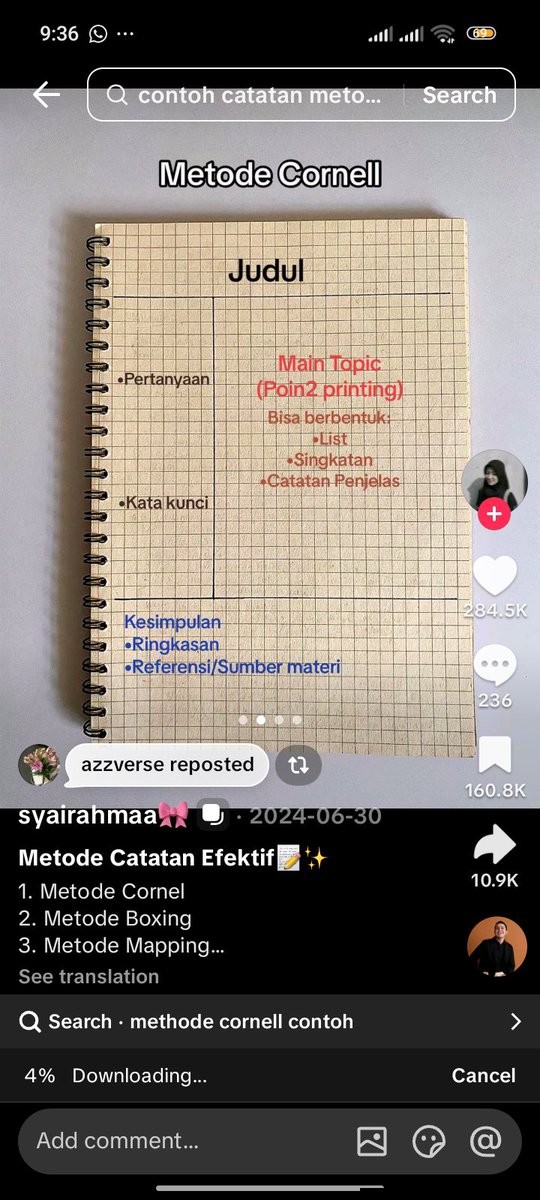 9:36
69
contoh catatan meto...
Search
Metode Cornell
Judul
•Pertanyaan
Main Topic
(Poin2 printing)
Bisa berbentuk:
•List
•Singkatan
•Catatan Penjelas
•Kata kunci
284.5K
Kesimpulan
•Ringkasan
•Referensi/Sumber materi
236
azzverse reposted
160.8K
syairahmaa🎀 · 2024-06-30
Metode Catatan Efektif📝✨
10.9K
1. Metode Cornel
2. Metode Boxing
3. Metode Mapping...
See translation
Search · methode cornell contoh
4% Downloading...
Cancel
Add comment...